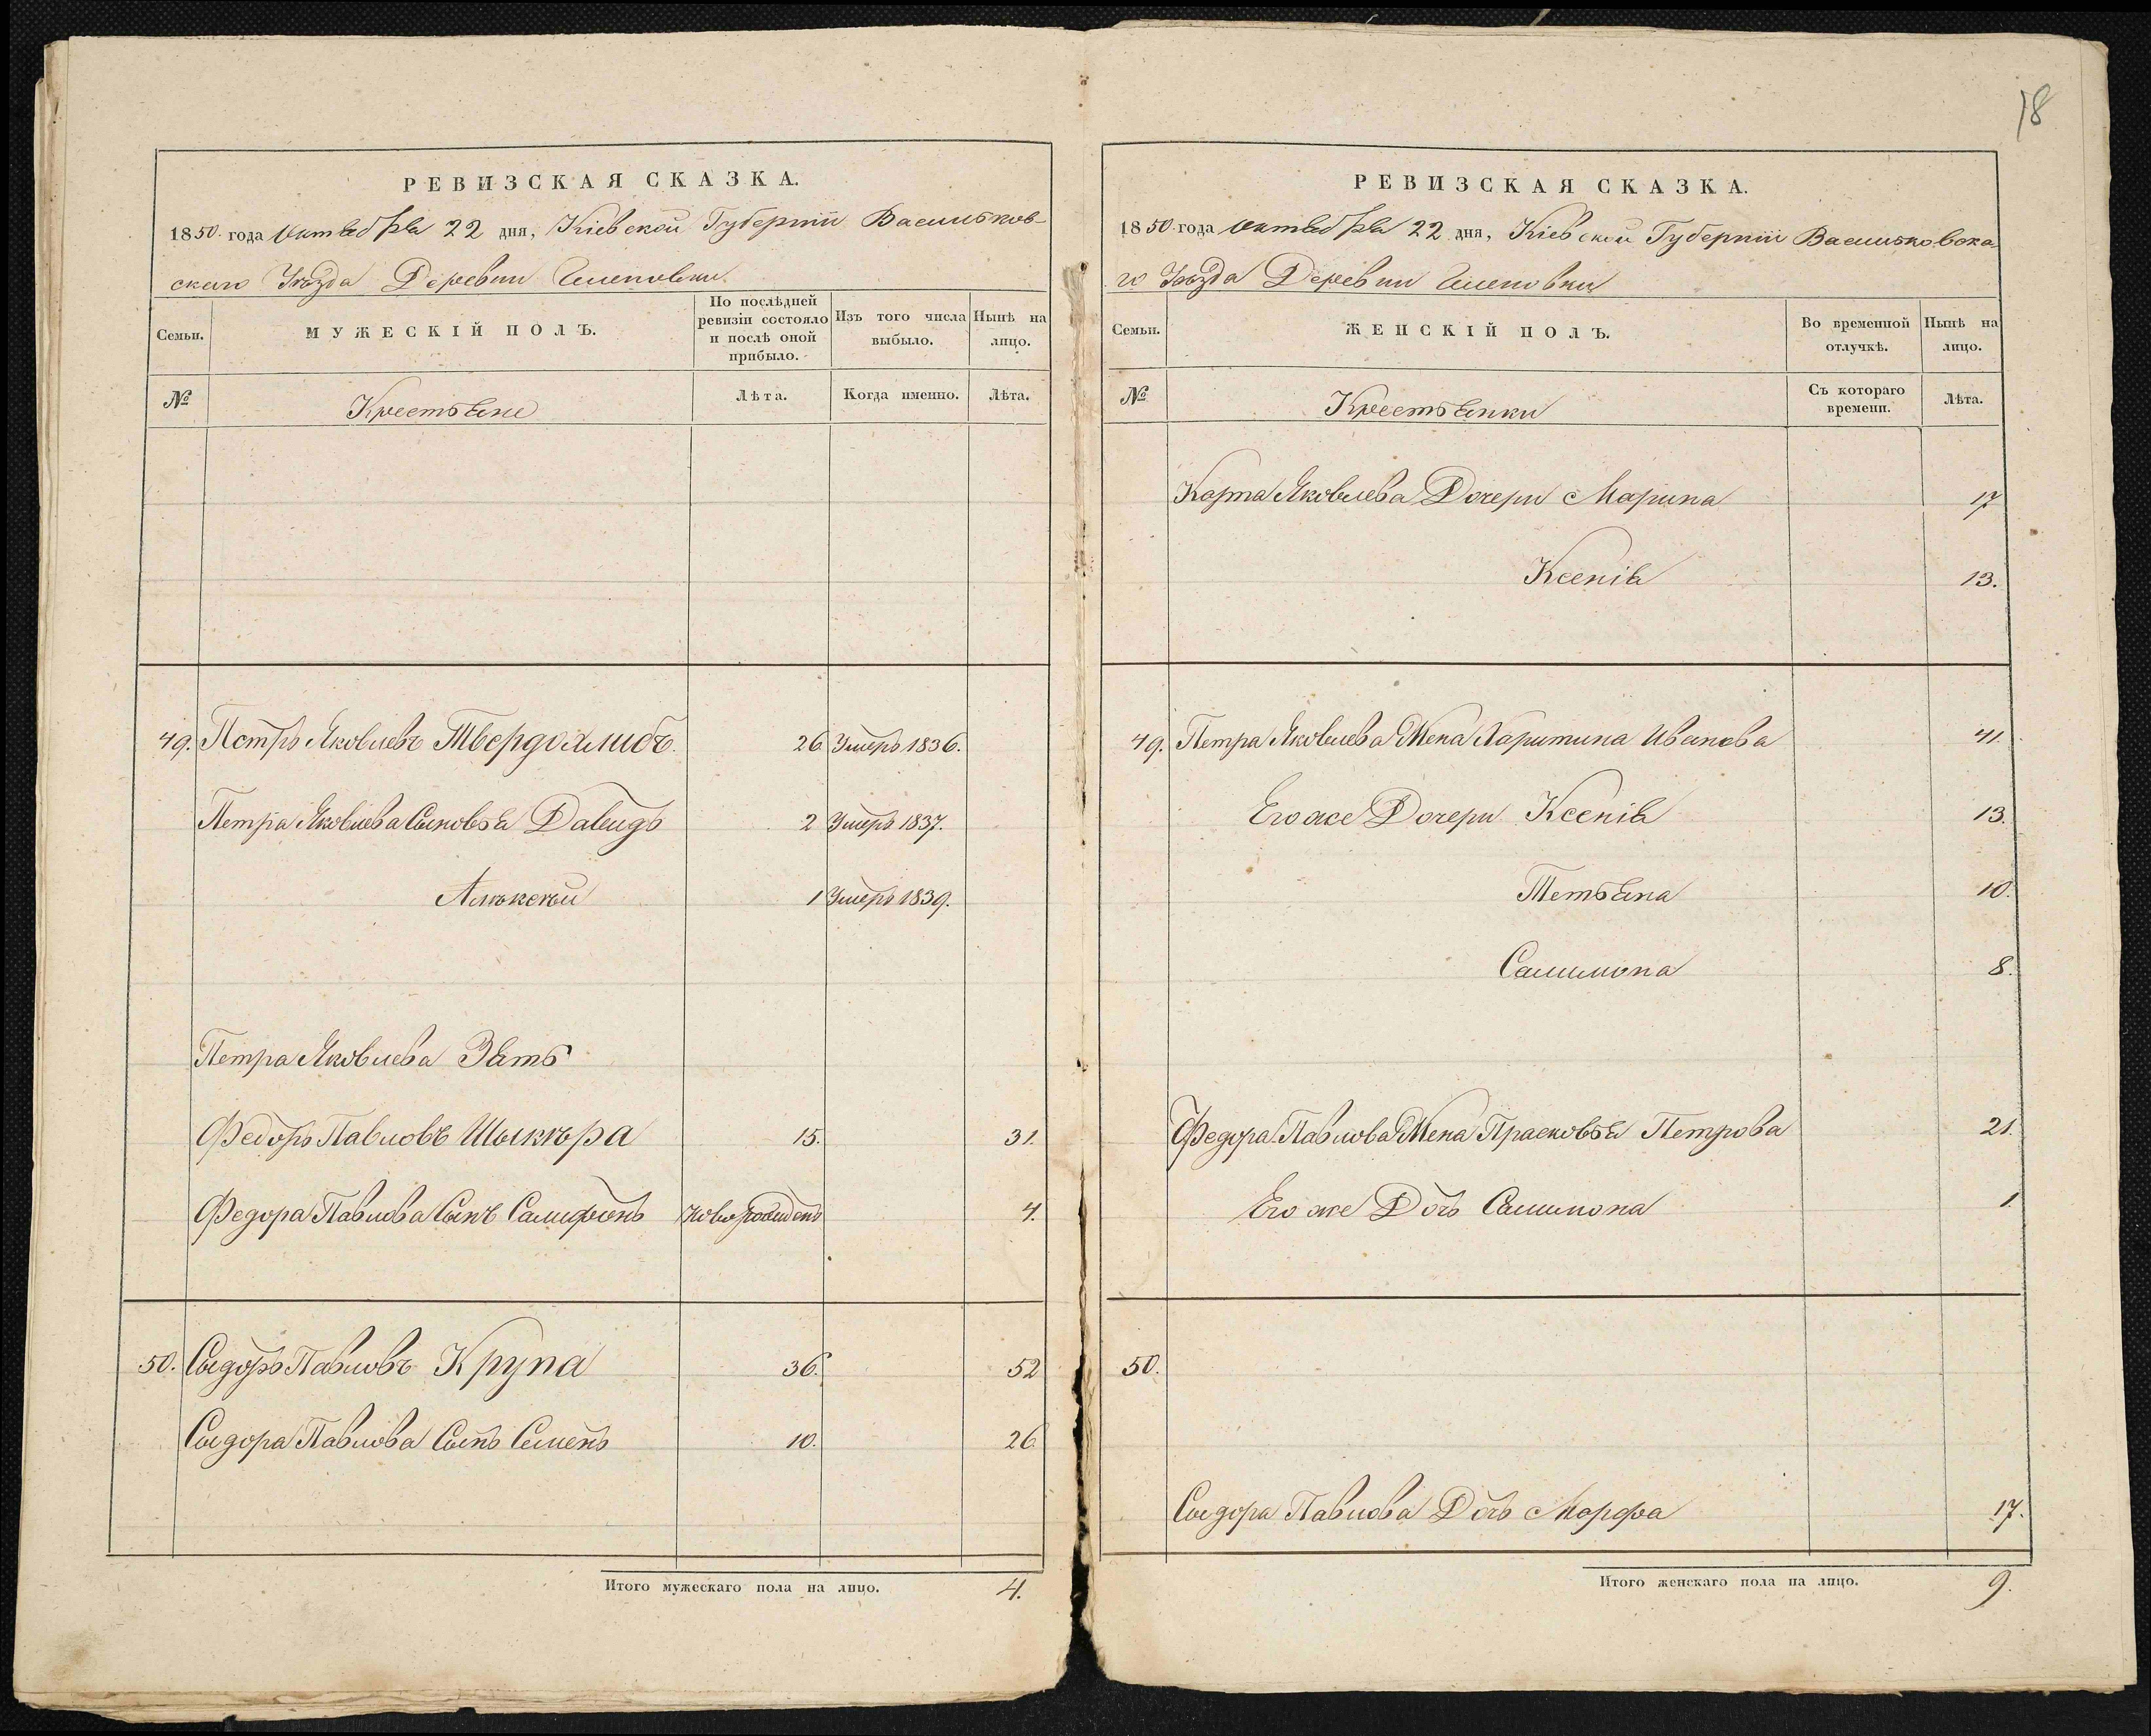 18
РЕВИЗСКАЯ СКАЗКА.
1850. года Октября 22 дня, Кіевской Губерніи Васильков-
скаго Уѣзда Деревни
Семьи.
МУЖЕСКІЙ ПОЛЪ.
По послѣдней ревизіи состояло и послѣ оной прибыло.
Изъ того числа выбыло.
Нынѣ на лицо.
№
Крестьяне
Лѣта.
Когда именно.
Лѣта.
49. Петръ Яковлевъ Твердохлибъ. 26 Умеръ 1836.
Петра Яковлева Сыновья Давидъ 2 Умеръ 1837.
Алѣксѣй 1 Умеръ 1839.
Петра Яковлева Зять
Федоръ Павловъ 15. 31.
Федора Павлова Сынъ Самифонъ Новорожденъ 4.
50. Сыдоръ Павловъ Крупа 36. 52
Сыдора Павлова Сынъ Семенъ 10. 26
Итого мужескаго пола на лицо. 4.
РЕВИЗСКАЯ СКАЗКА.
1850 года Октября 22 дня, Кіевской Губерніи Васильковска-
го Уѣзда Деревни
Семьи.
ЖЕНСКІЙ ПОЛЪ.
Во временной отлучкѣ.
Нынѣ на лицо.
№
Крестьянки
Съ котораго времени.
Лѣта.
Карпа Яковлева Дочери Марина 17
Ксенія 13.
49. Петра Яковлева Жена Харитина Иванова 41.
Его же Дочери Ксенія 13.
Тетьяна 10.
8.
Федора Павлова Жена Прасковья Петрова 21.
Его же Дочь 1.
50.
Сыдора Павлова Дочь Марфа 17.
Итого женскаго пола на лицо. 9.